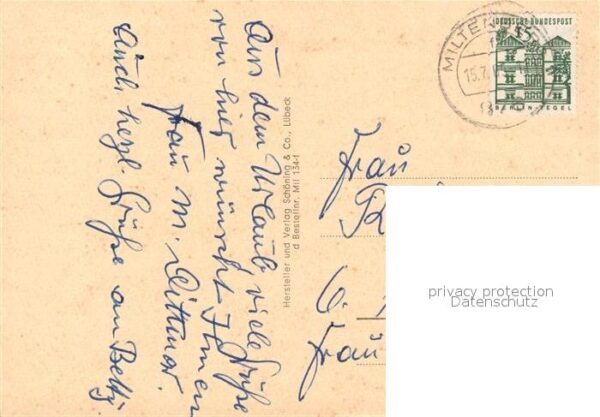 Aus dem Urlaub viele Grüße
von hier wünscht Ihnen
Frau M. Dittmar.
Auch herzl. Grüße an Betti
Hersteller und Verlag Schöning & Co., Lübeck
d Bestellnr. Mil 134-f
DEUTSCHE BUNDESPOST
15
BERLIN-TEGEL
MILTEN
15.7.
Frau
Frau
privacy protection
Datenschutz